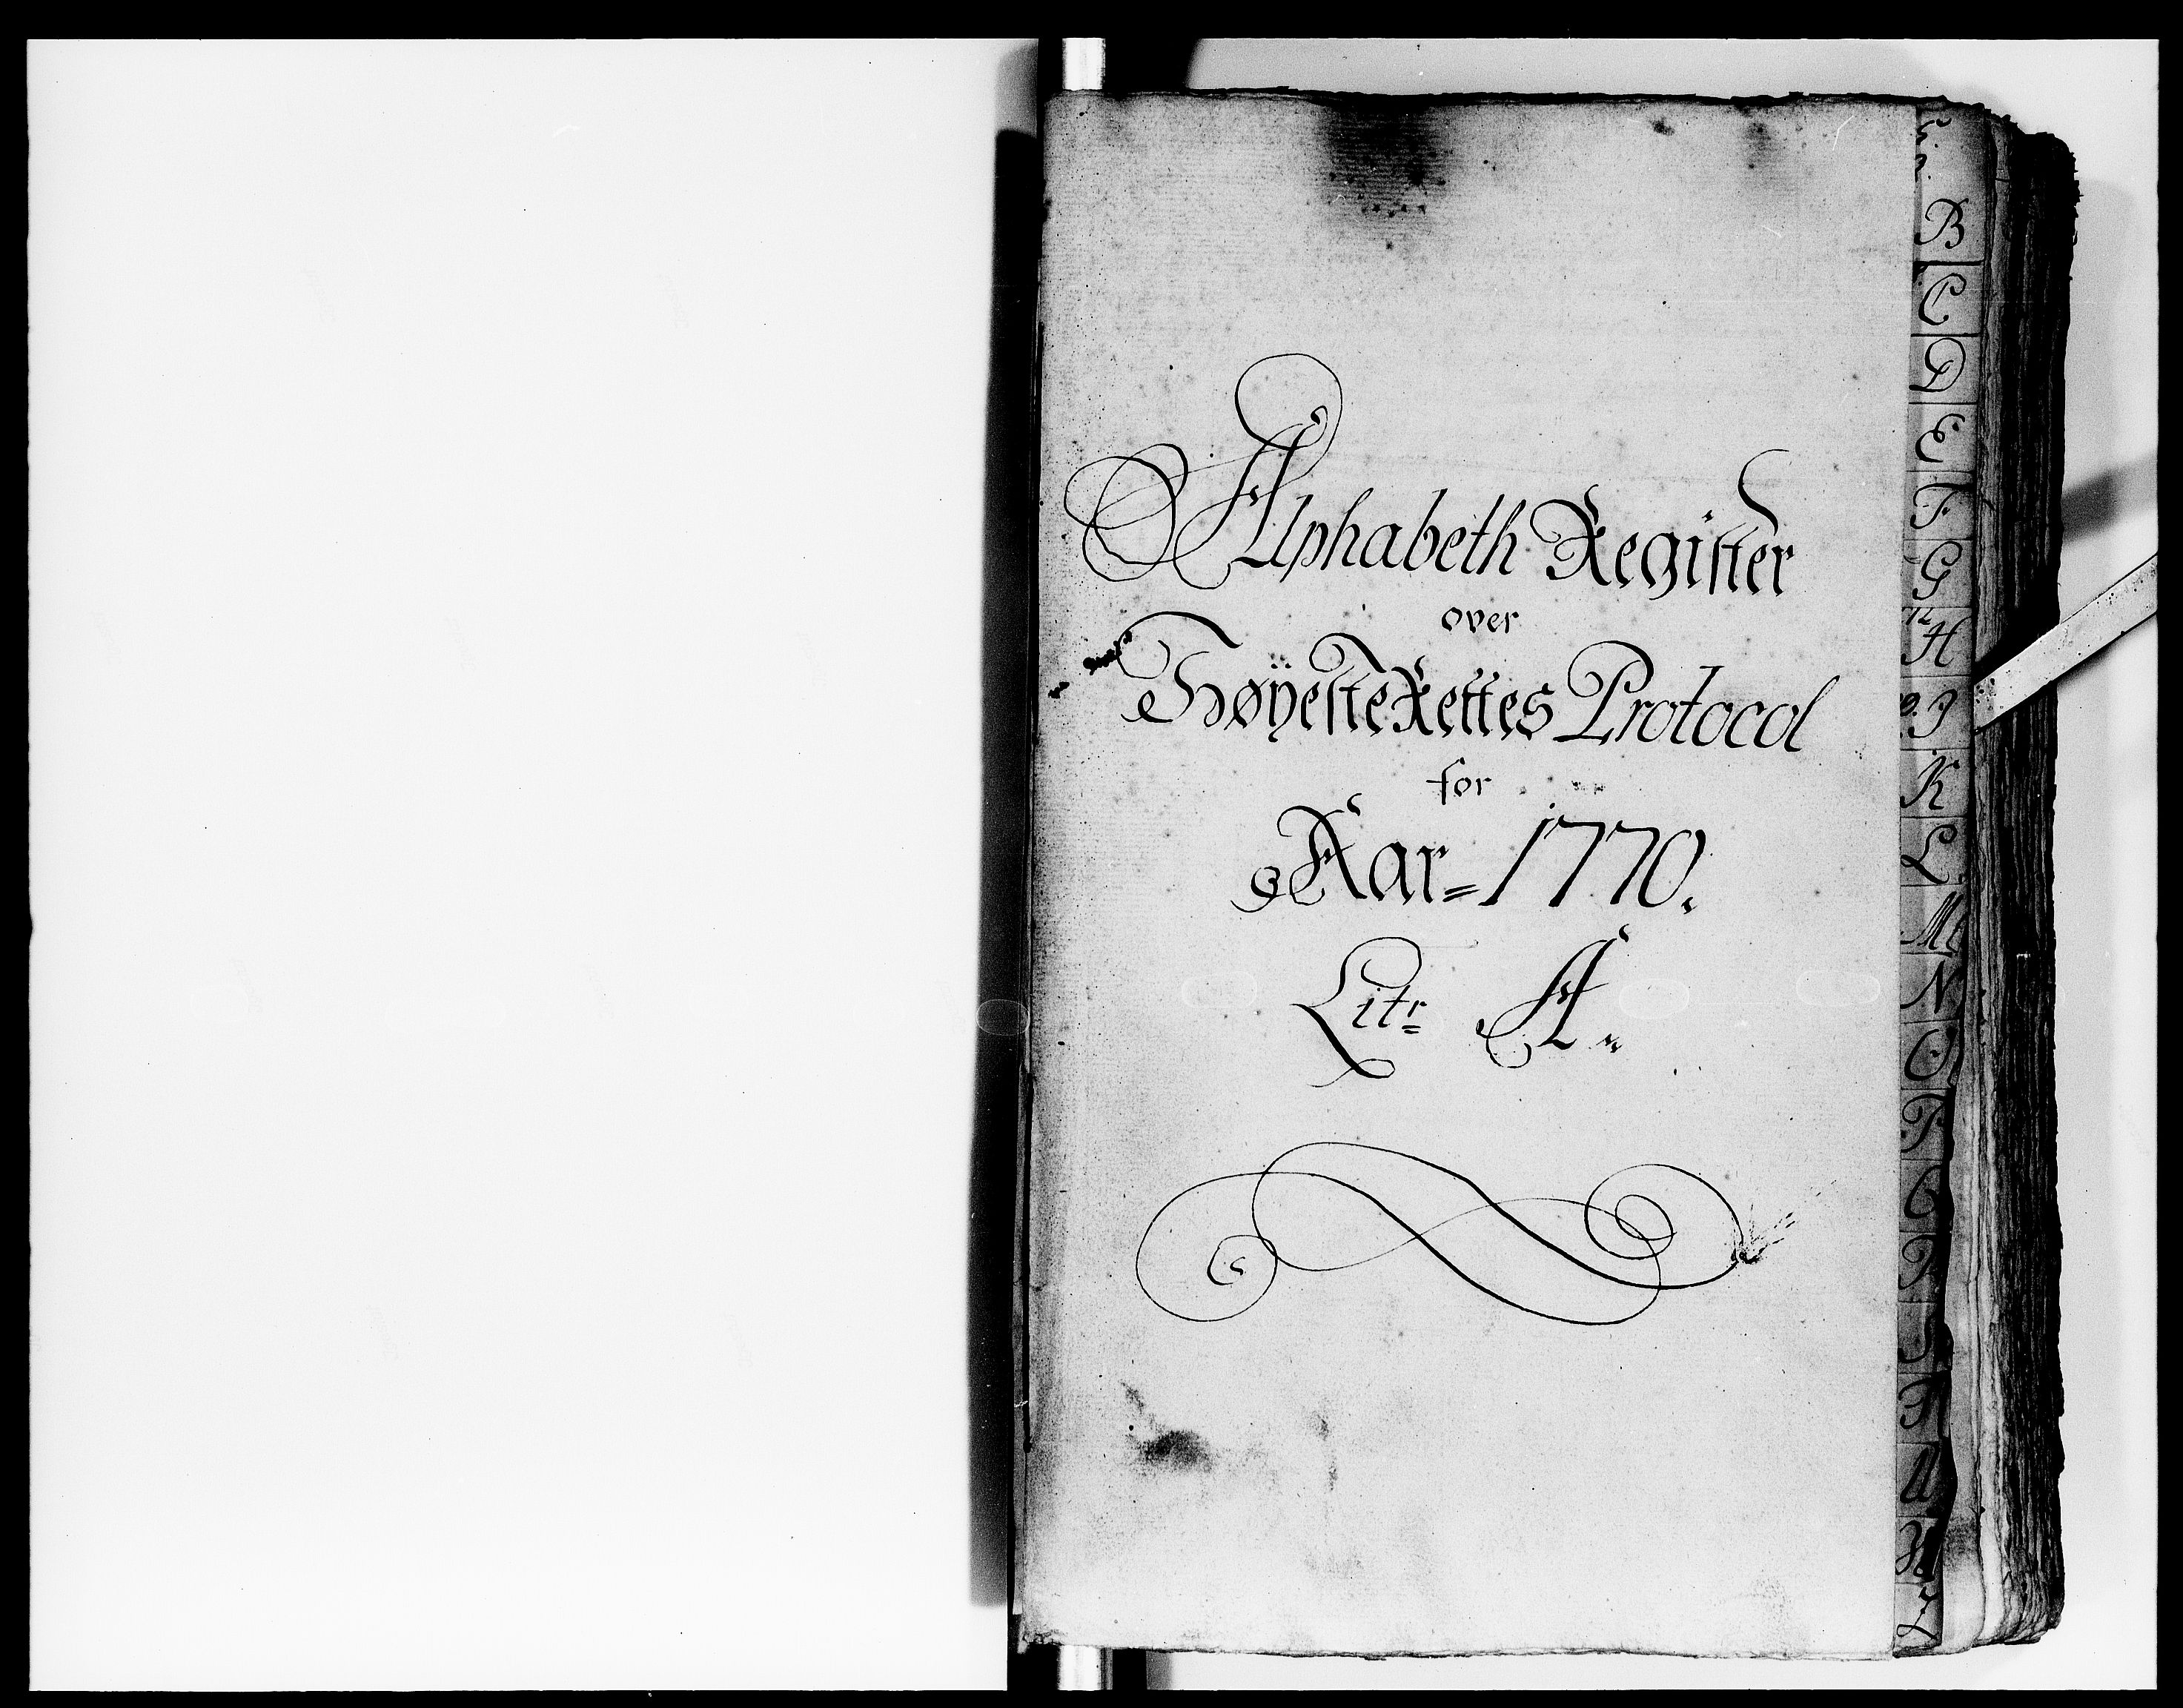 Alphabeth Register
over
HøÿesteRettes Protocol
for
Aar = 1770.
Litr A.
B
C
D
E
F
G
H
I
K
L
M
N
O
P
Q
R
S
T
U